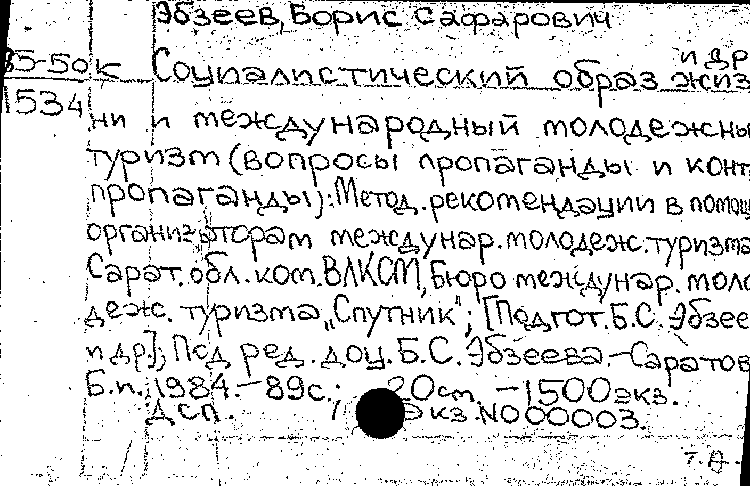 Эбзеев, Борис Сафарович
и др
85-50к Социалистический образ жиз
1534
ни и международный молодежны
туризм (вопросы пропаганды и конт
пропаганды): Метод. рекомендации в помощ
организаторам междунар. молодеж. туризма
Сарат. обл. ком. ВЛКСМ, Бюро междунар. моло
деж. туризма „Спутник"; [Подгот. Б.С. Эбзее
и др.]; Под ред. доц. Б.С. Эбзеева.-Саратов
Б.и., 1984.-89с.; 20см. -1500экз.
Дсп. Экз. №000003.